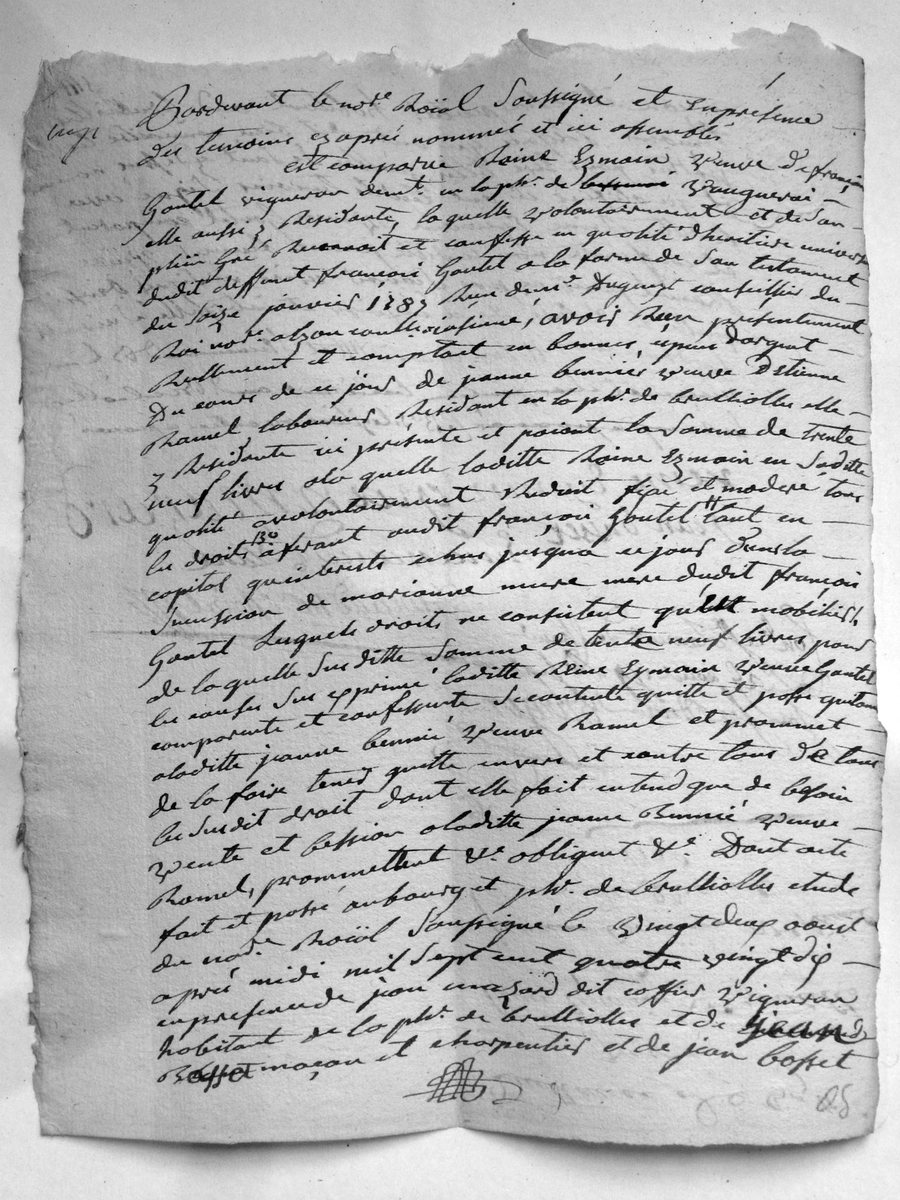 Pardevant le nore Roïal Soussigné et Enprésence
des temoins cy apres nommés et ici assemblés
est comparue Reine Eymain Veuve de françois
Goutel vigneron demt. en la psse. de Vaugneray
elle aussi y Residante, laquelle volontairement et de son
plein Gré Reconnoit et confesse en qualité d'heritiere universelle
dudit deffunt françois Goutel a la forme de son testament
du Seize janvier 1783 Reçu de me. conseiller du
Roi nore. a Lyon, avoir Reçu présentement
Reellement et comptant en bonnes especes d'argent
du cours de ce jour de jeanne bennié veuve d'Etienne
Ramel laboureur Residant en la psse. de brulliolles elle
y Residante ici présente et paiant la Somme de trente
neuf livres a la quelle laditte Reine Eymain en Saditte
qualité a volontairement Reduit fixé et moderé tous
les droits afferant audit françois Goutel tant en
capital qu'interets echus jusqu'a ce jour dans la
Sucession de marianne mure mere dudit françois
Goutel Lesquels droits ne consistent qu'en mobiliers,
de la quelle Susditte Somme de trente neuf livres pour
les causes Sus exprimé laditte Reine Eymain veuve Goutel
comparente et confessante Se contente quitte et passe quittance
a laditte jeanne bennié veuve Ramel et prommet
de la faire tenir quitte envers et contre tous de tous
les Susdit droit dont elle fait entend que de besoin
vente et Cession a laditte jeanne Bennié veuve
Ramel, promettent &c. obligent &c. Dont acte
fait et passé au bourg et psse. de brulliolles etude
du nore. Roïal Soussigné le vingt deux aout
après midi mil Sept cent quatre vingt dix
en presence de jean mazard dit coffier vigneron
habitant de la psse. de brulliolles et de jean
Bosset maçon et charpentier et de jean bosset